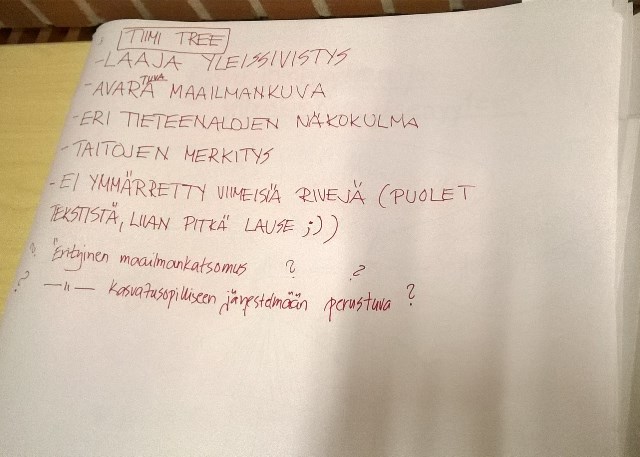 TIIMI TREE
- LAAJA YLEISSIVISTYS
- AVARTUVA MAAILMANKUVA
- ERI TIETEENALOJEN NÄKÖKULMA
- TAITOJEN MERKITYS
- EI YMMÄRRETTY VIIMEISIÄ RIVEJÄ (PUOLET
TEKSTISTÄ, LIIAN PITKÄ LAUSE ;))
? "Erityinen maailmankatsomus ? ?
? —"— kasvatusopilliseen järjestelmään perustuva ?